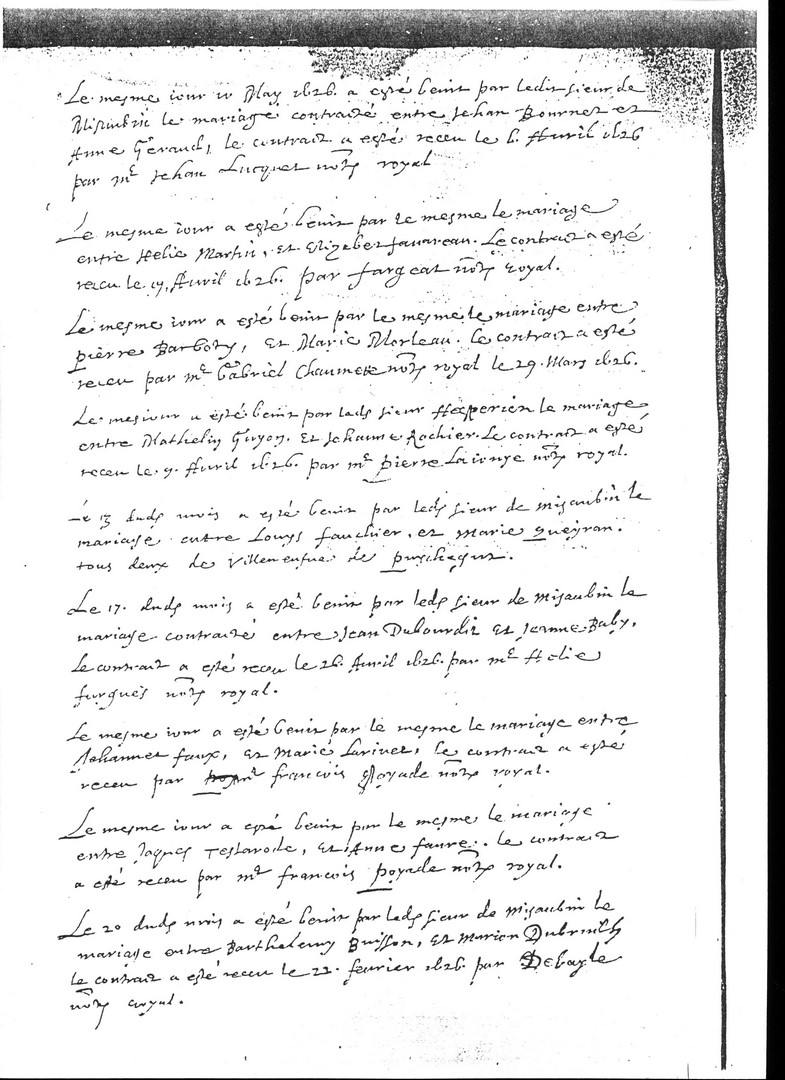 Le mesme iour 10 May 1626. a esté benit par ledit sieur de
Misaubin le mariage contraité entre Jehan Bournet et
Anne Geraud, le contrait a esté receu le 6. Auril 1626
par me Jehan Lucquet notre royal
Le mesme iour a esté benit par le mesme le mariage
entre Helie Martin, et Elizabet favareau. Le contrait a esté
receu le 19. Auril 1626. par fargeat notre royal.
Le mesme iour a esté benit par le mesme le mariage entre
pierre Barboty, et Marie Morleau. le contrait a esté
receu par me Gabriel Chaumete notre royal le 29. Mars 1626.
Le mes iour a esté benit par leds sieur Hesperien le mariage
entre Mathelin Guyon. et Jehanne Rochier. Le contrait a esté
receu le 9. Auril 1626. par me pierre notre royal.
Le 13 duds mois a esté benit par leds sieur de misaubin le
mariage entre Louys fauchier, et Marie queyran.
tous deux de Villeneufue de
Le 17. duds mois a esté benit par leds sieur de Misaubin le
mariage contraité entre Jean Dubourdit et Jeanne Baby,
Le contrait a esté receu le 26. Auril 1626. par me Helie
furgues notre royal.
Le mesme iour a esté benit par le mesme le mariage entre
Johannet faux, et Marie Larivet, le contrait a esté
receu par me francois poyade notre royal.
Le mesme iour a esté benit par le mesme le mariage
entre Jaques Testarode, et Anne faure. le contrait
a esté receu par me francois poyade notre royal.
Le 20 duds mois a esté benit par leds sieur de Misaubin le
mariage entre Barthelemy Buisson, et Marion Dubreilh
le contrait a esté receu le 22. feurier 1626. par Debayle
notre royal.